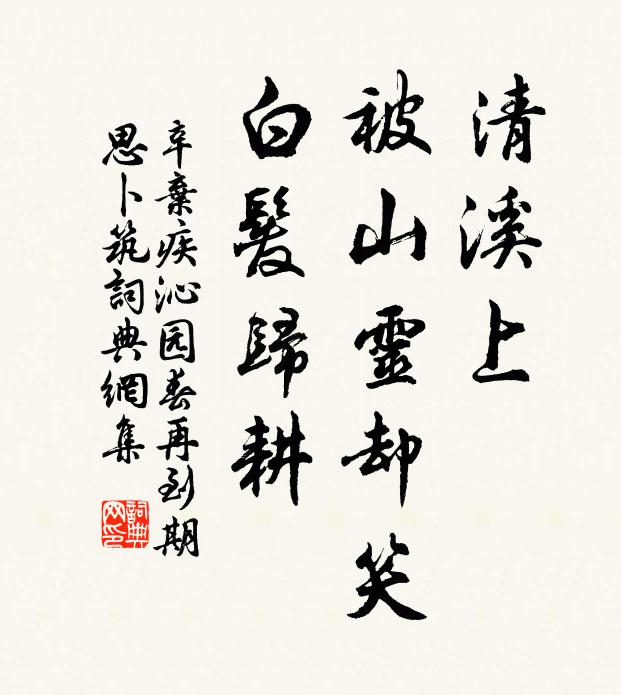 清溪上
被山靈却笑
白髮歸耕
辛棄疾沁园春再到期
思卜筑詞典網集
詞典网